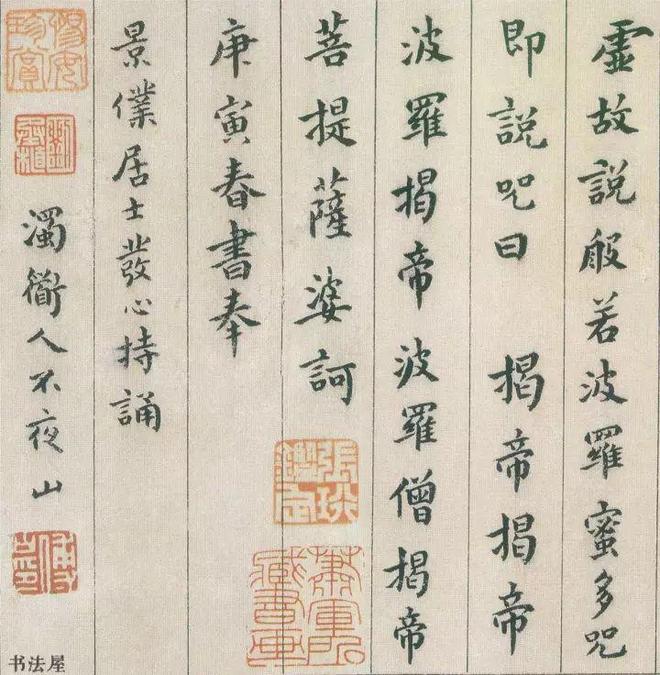 虛故說般若波羅蜜多咒
即說咒曰 揭帝揭帝
波羅揭帝波羅僧揭帝
菩提薩婆訶
庚寅春書奉
景僕居士發心持誦
濁衜人不夜山
蕭軍所藏書畫
书法屋